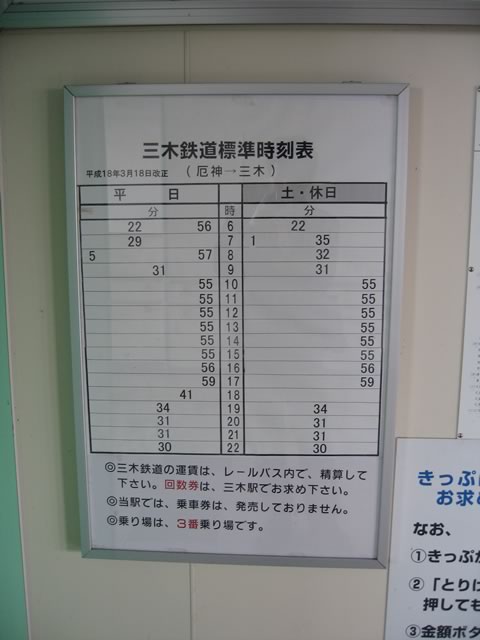 三木鉄道標準時刻表
平成18年3月18日改正 (厄神→三木)
平 日 土・休日
分 時 分
22 56 6 22
29 7 1 35
5 57 8 32
31 9 31
55 10 55
55 11 55
55 12 55
55 13 55
55 14 55
55 15 55
56 16 56
59 17 59
41 18
34 19 34
31 20 31
31 21 31
30 22 30
◎三木鉄道の運賃は、レールバス内で、精算して
下さい。回数券は、三木駅でお求め下さい。
◎当駅では、乗車券は、発売しておりません。
◎乗り場は、3番乗り場です。
きっぷ
お求め
なお、
①きっぷ
②「とりけ
押しても
③金額ボタ